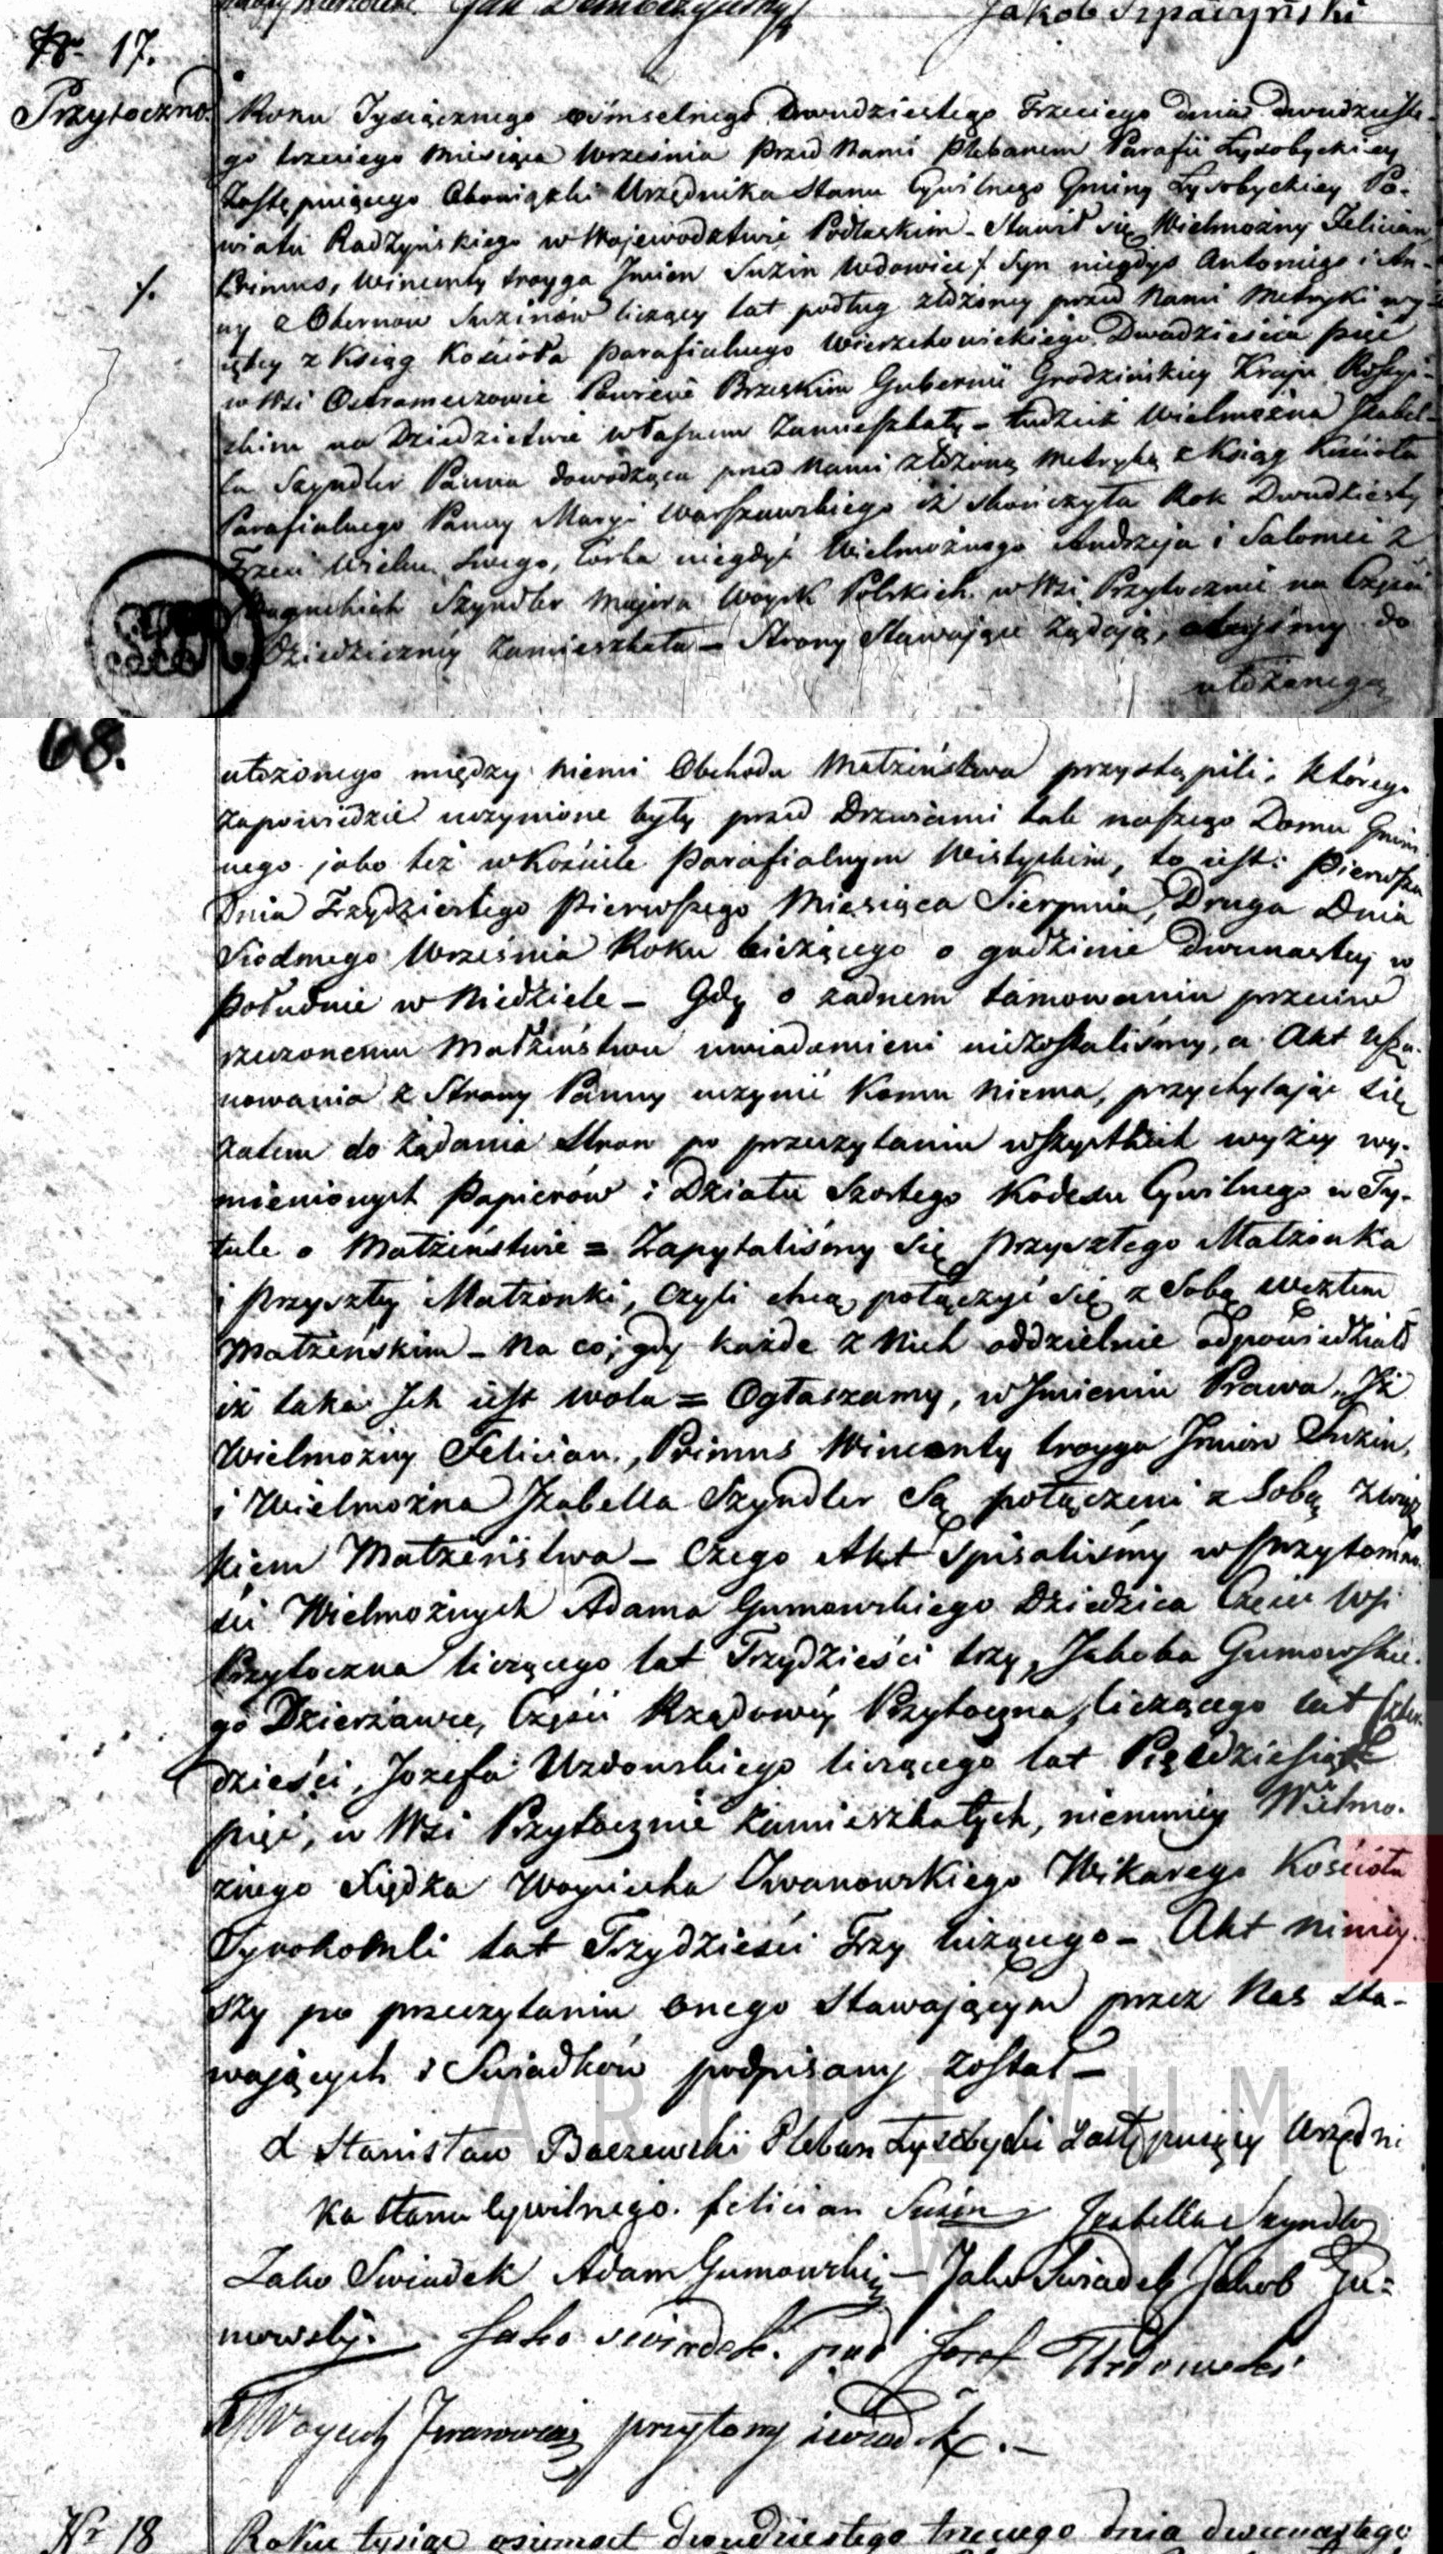 Jan Dembczyński Jakob Szpaczyński
Nr 17.
Przytoczno.
Roku Tysiącznego ośmsetnego Dwudziestego Trzeciego dnia dwudzieste-
go trzeciego Miesiąca Września Przed Nami Plebanem Parafii Łysobyckiey
Zastępuiącego Obowiązki Urzędnika Stanu Cywilnego Gminy Łysobyckiey Po-
wiatu Radzyńskiego w Wojewodztwie Podlaskim – Stawił się Wielmożny Felician,
Primus, Wincenty troyga Jmion Suzin Wdowiec / Syn niegdyś Antoniego i An-
ny z Obernow Suzinów liczący lat podług złożoney przed Nami Metryki wy-
iętey z Ksiąg Kościoła parafialnego Wierzchowickiego Dwadzieścia pięć
w Wsi Ostromeczowie Powiecie Brzeskim Gubernii Grodzińskiey Kraju Rossyi-
skim na Dziedzictwie własnem Zamieszkały – tudzież Wielmożna Jzabel-
la Szyndler Panna dowodząca przed Nami złożoną Metryką z Ksiąg Kościoła
Parafialnego Panny Maryi Warszawskiego iż skończyła Rok Dwudziesty
Trzeci Wieku Swego, Córka niegdyś Wielmożnego Andrzeja i Salomei z
Szyndler Majora Woysk Polskich w Wsi Przytocznie na Części
Dziedziczney Zamieszkała – Strony Stawające Żądają, abyśmy do
ułożonego
68.
ułożonego między niemi Obchodu Małżeństwa przystąpili, którego
Zapowiedzie uczynione były przed Drzwiami tak naszego Domu Gmin
nego jako też w Kościele Parafialnym Wistyckim, to iest: Pierwsza
Dnia Trzydziestego Pierwszego Miesiąca Sierpnia, Druga Dnia
Siodmego Września Roku bieżącego o godzinie Dwunastey w
Południe w Niedziele – Gdy o żadnem tamowaniu przeciw
rzeczonemu Małżeństwu uwiadomieni niezostaliśmy, a Akt Usza-
nowania z Strony Panny uczynić Komu niema, przychylając się
zatem do żądania Stron po przeczytaniu wszystkich wyżey wy-
mienionych Papierów i Działu Szostego Kodexu Cywilnego w Ty-
tule o Małżeństwie = Zapytaliśmy się Przyszłego Małżonka
i przyszłey Małżonki, czyli chcą połączyć się z Sobą węzłem
Małżeńskim – Na co; gdy każde z Nich oddzielnie odpowiedziało
iż taka Jch iest wola = Ogłaszamy, w Jmieniu Prawa, Jż
Wielmożny Felician, Primus Wincenty troyga Jmion Suzin,
i Wielmożna Jzabella Szyndler Są połączeni z Sobą Związ
kiem Małżeństwa – Czego Akt Spisaliśmy w Przytomno
ści Wielmożnych Adama Gumowskiego Dziedzica Części Wsi
Przytoczna liczącego lat Trzydzieści trzy, Jakoba Gumowskie-
go Dzierżawcę Części Rządowey Przytoczna, liczącego lat Czter-
dzieści, Jozefa Uzdowskiego liczącego lat Pięćdziesiąt
pięć, w Wsi Przytocznie Zamieszkałych, niemniey Wielmo-
żnego Xiędza Woyciecha Jwanowskiego Wikarego Kościoła
Syrokomli lat Trzydzieści Trzy liczącego – Akt niniey-
szy po przeczytaniu onego Stawającym przez Nas Sta-
wających i Swiadków podpisany został –
X Stanisław Baczewski Pleban Łysobycki Zastępuiący Urzędni
ka Stanu Cywilnego. Felician Suzin Jzabella Szyndler
Jako Swiadek Adam Gumowski – Jako Swiadek Jakob Gu-
mowski. Jako swiadek. Josef Uzdowski
X Woyciech Jwanowski przytomy swiadek. –
ARCHIWUM
Nr 18
Roku tysiąc osiemset dwudziestego trzeciego dnia dwunastego